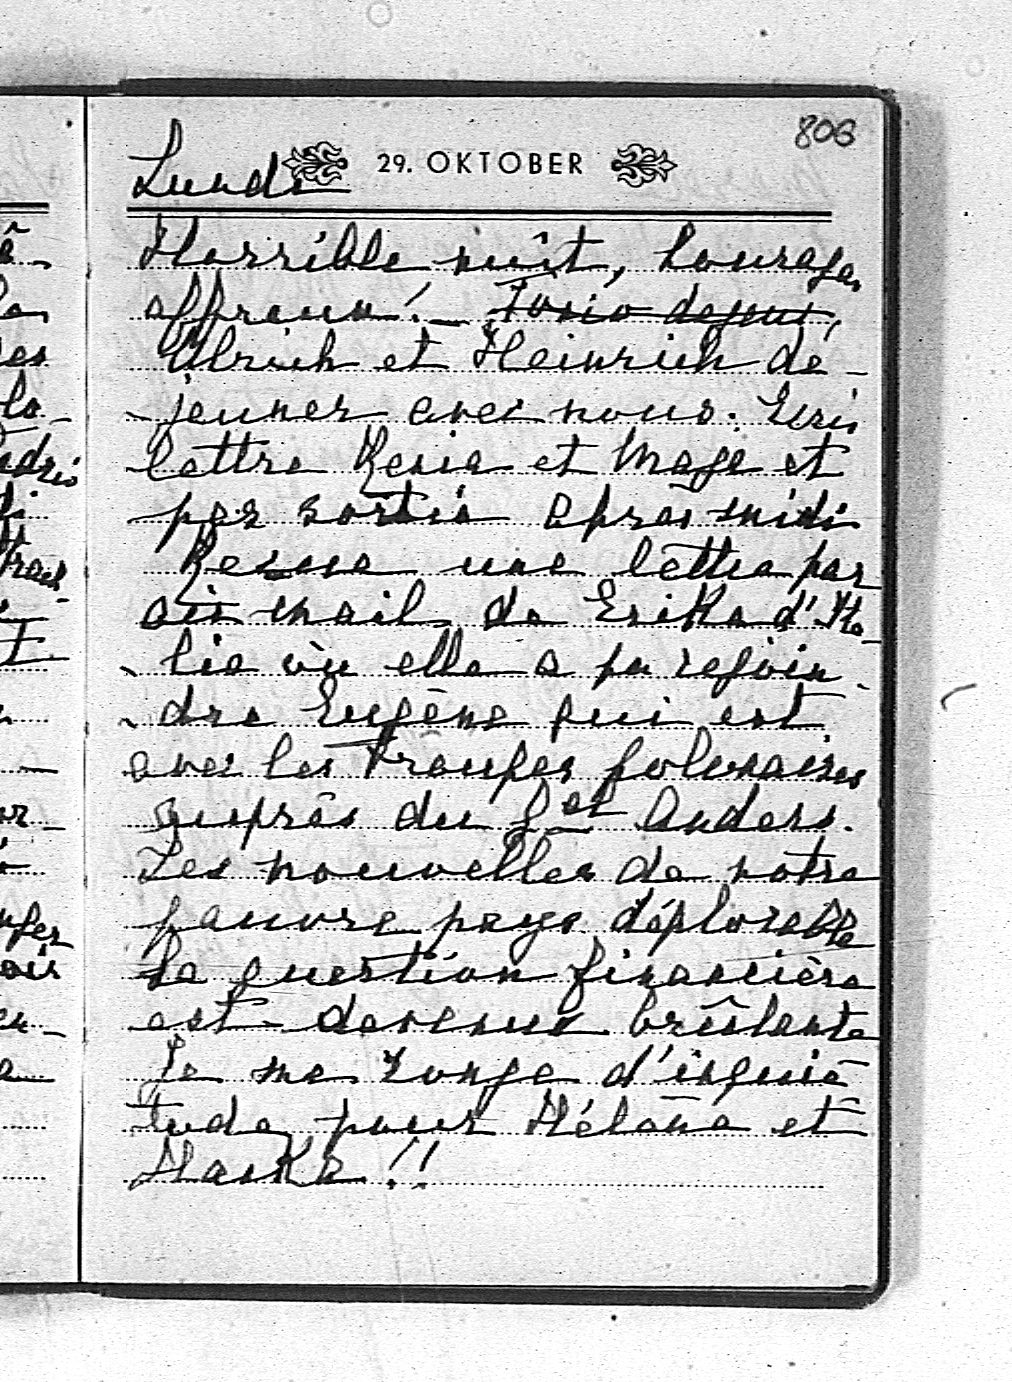 806
Lundi
29. OKTOBER
Horrible nuit, houragan
affreux!
Ulrich et Heinrich dé-
jeuner avec nous. Ecris
lettre Renia et Mage et
pas sortie après midi
Reçue une lettre par
air mail de Erika d'Ita-
lie où elle a pu rejoin-
dre Eugène qui est
avec les troupes polonaises
auprès du Gal Anders.
Les nouvelles de notre
pauvre pays déplorable
La question financière
est devenue brûlante
Je me ronge d'inquié-
tude pour Hélène et